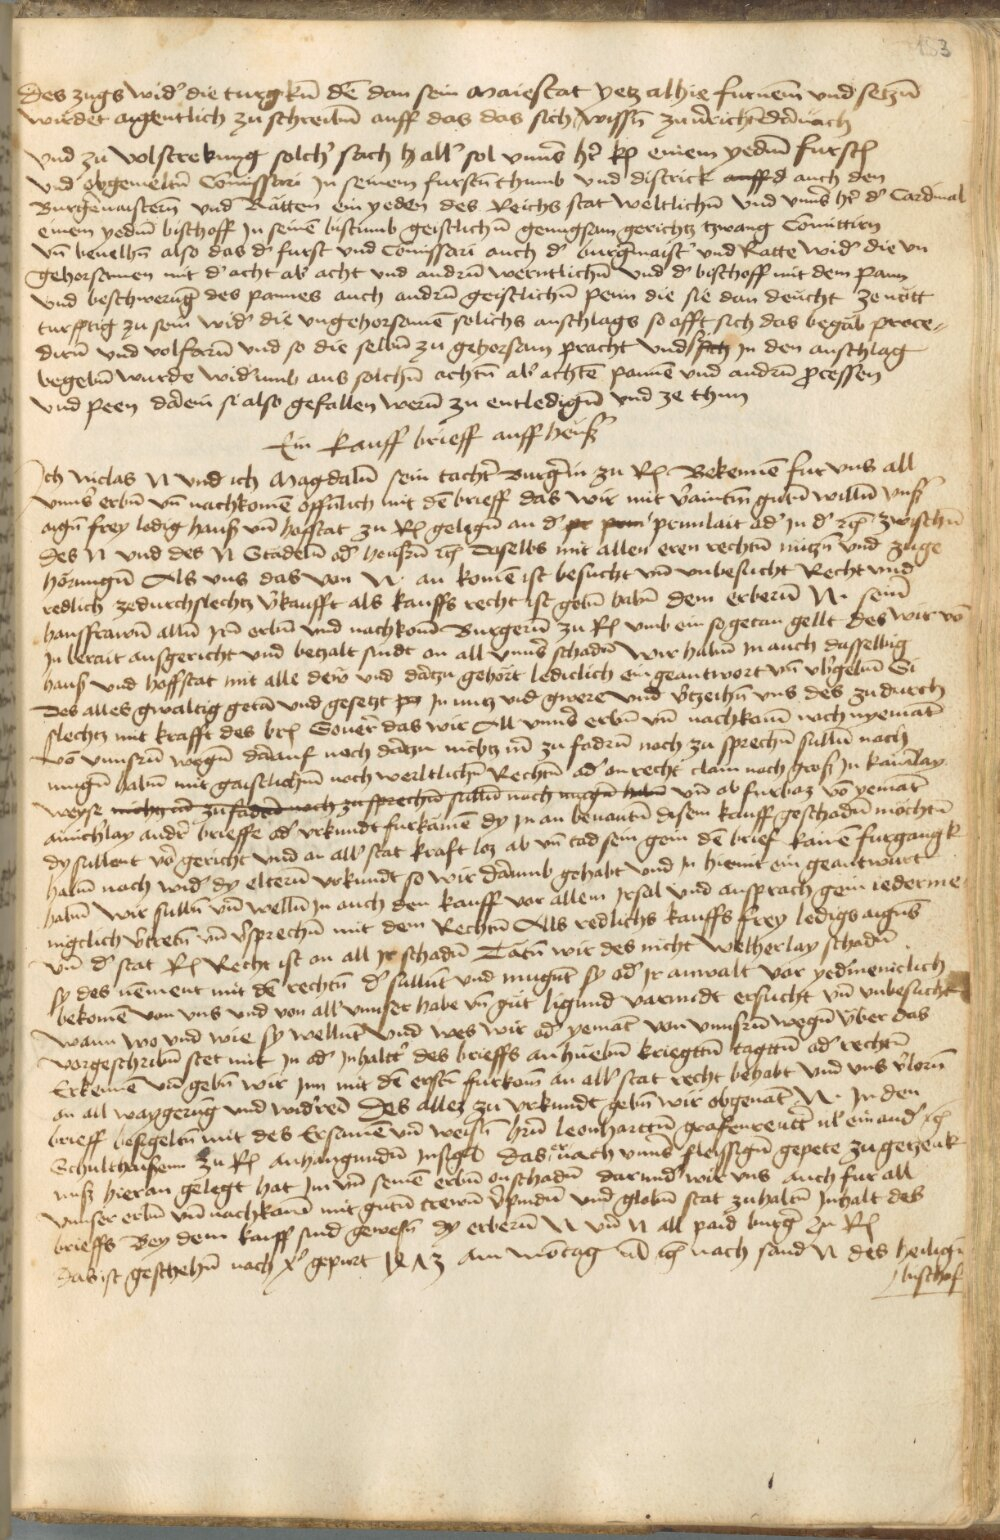 153
des zugs wid' die turgkn̄ dē dan sein Maiestat yetz alhie furnem̄ und setzn̄
wurdet aigentlich zu schreibn̄ auff das das sich wissn̄ zu richtn̄ darnach
Und zu volstrekung solch' sach h all' sol unns' h'r k einem yedn̄ furstn̄
und obgemeltn̄ Comissari In seinem furstn̄thumb und district auff d auch den
Burgermaistern̄ und Rätten ein yeden des Reichs stat weltlichn̄ und unns' h'r d' Cardinal
einem yedn̄ bischoff In seinē bistumb geistlichn̄ genugsam gerichtz zwang Comittirn
vn̄ bevelhn̄ also das d' furst und Comissari auch d' burg'maist' und Ratte wid' die un
gehorsamen mit d' acht ab' acht und andrn̄ werntlichn̄ und d' bischoff mit dem pann
und beschwerūg des pannes auch andrn̄ geistlichn̄ penn die sie dan deucht ze nött
turfftig zu sein wid' die ungehorsamē solichs anschlags so offt sich das begäb proce-
dirn̄ und volfarn̄ und so die selbn̄ zu gehorsam pracht und sich In den anschlag
begebn̄ wurde wid'umb aus solchn̄ achtn̄ ab' achtē pannē und andrn̄ pcessen
und peen darein si also gefallen wern̄ zu entledign̄ und ze thun
Ein kauff brieff auff heuß'
Ich Niclas N und ich Magdaln̄ sein tacht' Burg'in zu R Bekennē fur uns all
unns' erbn̄ vn̄ nachkomē offnlich mit dē brieff das wir mit v'aintn̄ gutn̄ willn̄ uns'
aign̄ frey ledig hauß vn̄ hofstat zu R gelegn̄ an d' pr prun prunlait od' In d' zwischn̄
des N und des N Städeln̄ od' heusern̄ Daselbs mit allen eren rechtn̄ nutzn̄ und zuge
hörungn̄ Als uns das von N. an komē ist besucht vn̄ unbesucht Recht und
redlich zedurchslechtz v'kaufft als kauffs recht ist gebn̄ habn̄ dem erbern̄ N. sein̄
hausfrawn̄ alln̄ Irn̄ erbn̄ und nachkom̄ Burgern̄ zu R umb ein so getan gellt des wir vō
In berait ausgericht und betzalt sindt on all unns' schadn̄ Wir habn̄ In auch dasselbig
hauß und hoffstat mit alle dem und dartzu gehört lediclich ein geantwort vn̄ ub'gebn̄ Si
Des alles gwaltig getā und gesetzt In nutz und gwere und v'tzeihn̄ uns des zu durch
slechtz mit krafft des br Souer das wir All unns' erbn̄ vn̄ nachkom̄ noch nyemāt
vō unnsrn̄ wegn̄ darauf noch dartzu nichtz nn̄ zu fadrn̄ noch zu sprechn̄ sulln̄ noch
mugn̄ habn̄ mit gaistlichn̄ noch werltlichn̄ Rechtn̄ od' on recht clain noch groß In kain'lay
weyse nichtz nn̄ zu fadrn̄ noch zu sprechn̄ sulln̄ noch mugn̄ habn̄ vn̄ ob furbaz vō yemāt
ainichlay and' brieffe od' urkundt furkämē dy In an benantn̄ disem kauff geschadn̄ möchtn̄
dy sullent vor gericht und an all' stat kraft loz ab vn̄ tod sein gein dē brief kainē furgangk
habn̄ noch wid' dy eltern̄ urkundt so wir darumb gehabt und In hiemit ein geantwurt
habn̄ Wir sulln̄ vn̄ welln̄ In auch den kauff vor allem Irsal und ansprach gein iederme
nigclich v'tretn̄ vn̄ v'sprechn̄ mit dem Rechtn̄ Als redlichs kauffs frey ledigs aigns
vn̄ d' stat R Recht ist on all Ir schadn̄ Tätn̄ wir des nicht welherlay schadn̄
sy des nēment mit dē rechtn̄ d' sullnt und mugnt sy od' Ir anwalt vor yed'meniclich
bekomē von uns und von all' unnser habe vn̄ gut ligund varnndt ersucht vn̄ unbesucht
wann wo und wie sy wellnt Und wes wir od' yemāt von unnsrn̄ wegn̄ ub̈er das
vorgeschribn̄ stet mit In od' Inhalt' des brieffs anhuebn̄ kriegttn̄ tagttn̄ od' rechtn̄
Erkennē vn̄ gebn̄ wir Inn mit dē erstn̄ furkom̄ an all' stat recht behabt und uns v'lorn̄
on all waygerūg und wid'red Des alles zu urkundt gebn̄ wir obgenāt N. In den
brieff besigeltn̄ mit des Ersamē vn̄ weisn̄ hrn̄ leonharttn̄ grafenreutt' ul' einand'
Schulthaissem zu R anhangundn̄ Insigel das er nach unns' fleissign̄ gepete zu getzeuk
nuß hieran gelegt hat Im vn̄ seinē erbn̄ onschadn̄ dar und' wir uns auch fur all
unnser erbn̄ vn̄ nachkom̄ mit gutn̄ trewn̄ v'pindn̄ und globn̄ stat zu haltn̄ Inhalt des
brieffs Bey dem kauff sind gewesn̄ dy erbern̄ N vn̄ N all paid burg' zu R
Das ist geschehn̄ nach x' gepurt am Mōtag nach sand N des heilign̄
bischof